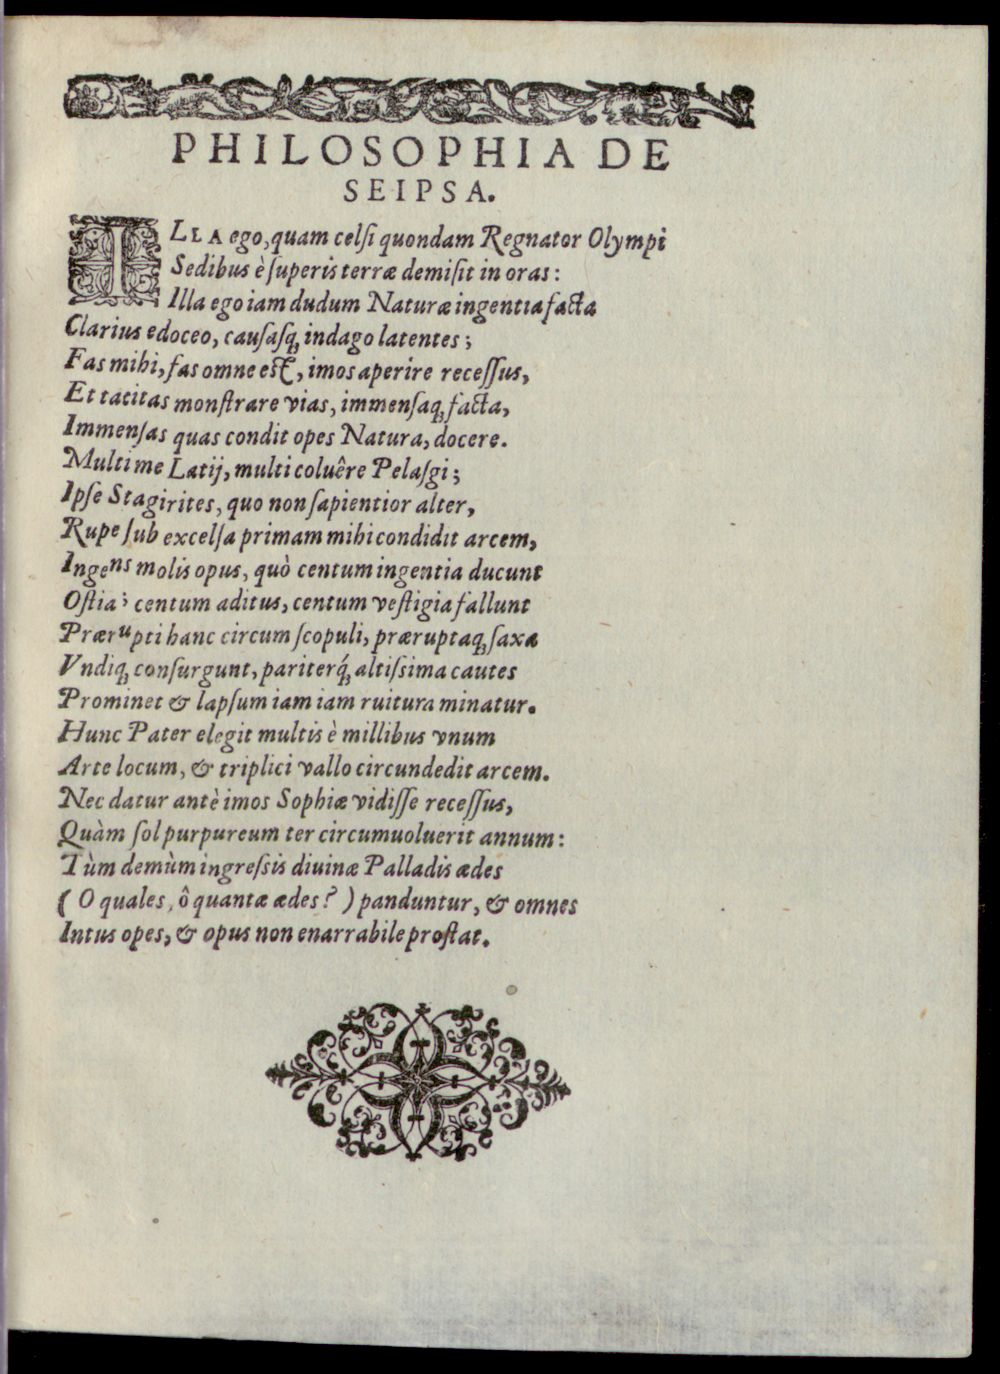 PHILOSOPHIA DE
SEIPSA.
ILLA ego, quam celsi quondam Regnator Olympi
Sedibus è superis terræ demisit in oras:
Illa ego iam dudum Naturæ ingentia facta
Clarius edoceo, causasq; indago latentes;
Fas mihi, fas omne est, imos aperire recessus,
Et tacitas monstrare vias, immensaq; facta,
Immensas quas condit opes Natura, docere.
Multi me Latij, multi coluêre Pelasgi;
Ipse Stagirites, quo non sapientior alter,
Rupe sub excelsa primam mihi condidit arcem,
Ingens molis opus, quò centum ingentia ducunt
Ostia; centum aditus, centum vestigia fallunt
Prærupti hanc circum scopuli, præruptaq; saxa
Vndiq; consurgunt, pariterq́; altissima cautes
Prominet & lapsum iam iam ruitura minatur.
Hunc Pater elegit multis è millibus vnum
Arte locum, & triplici vallo circundedit arcem.
Nec datur antè imos Sophiæ vidisse recessus,
Quàm sol purpureum ter circumuoluerit annum:
Tùm demùm ingressis diuinæ Palladis ædes
( O quales, ô quantæ ædes? ) panduntur, & omnes
Intus opes, & opus non enarrabile prostat.